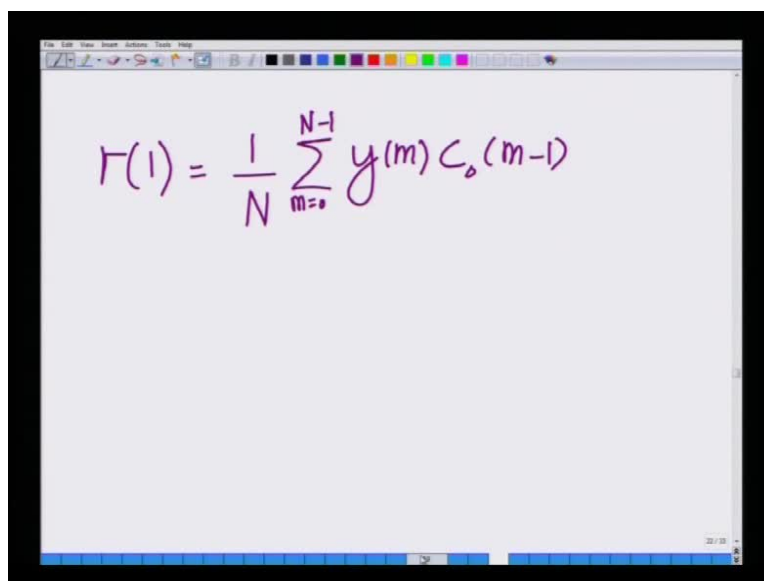 File Edit View Insert Actions Tools Help
r(1) = \frac{1}{N} \sum_{m=0}^{N-1} y(m) C_0 (m-1)